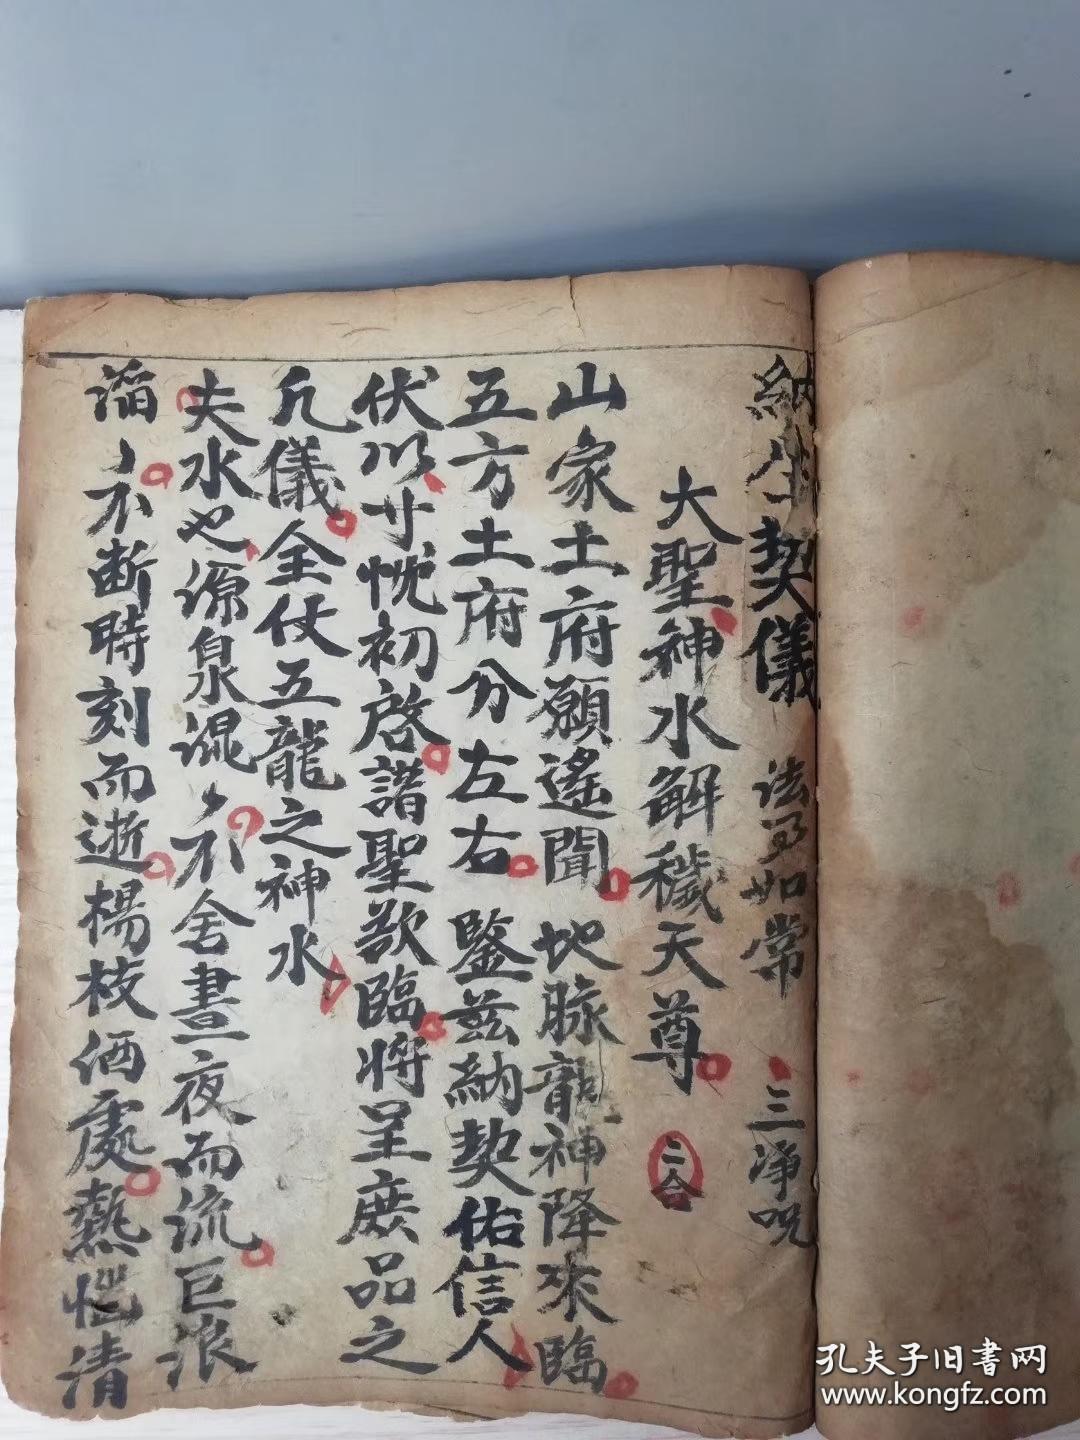 納生契儀 法事如常 三淨呪
大聖神水解穢天尊 二合
山家土府願遙聞 地脉龍神降來臨
五方土府分左右 鑒兹納契佑信人
伏以寸忱初啓諸聖欲臨將呈庶品之
凢儀全仗五龍之神水
夫水也源泉混々不舍晝夜而流巨浪
滔々不断時刻而逝楊枝洒處熱惱清
孔夫子旧书网
www.kongfz.com